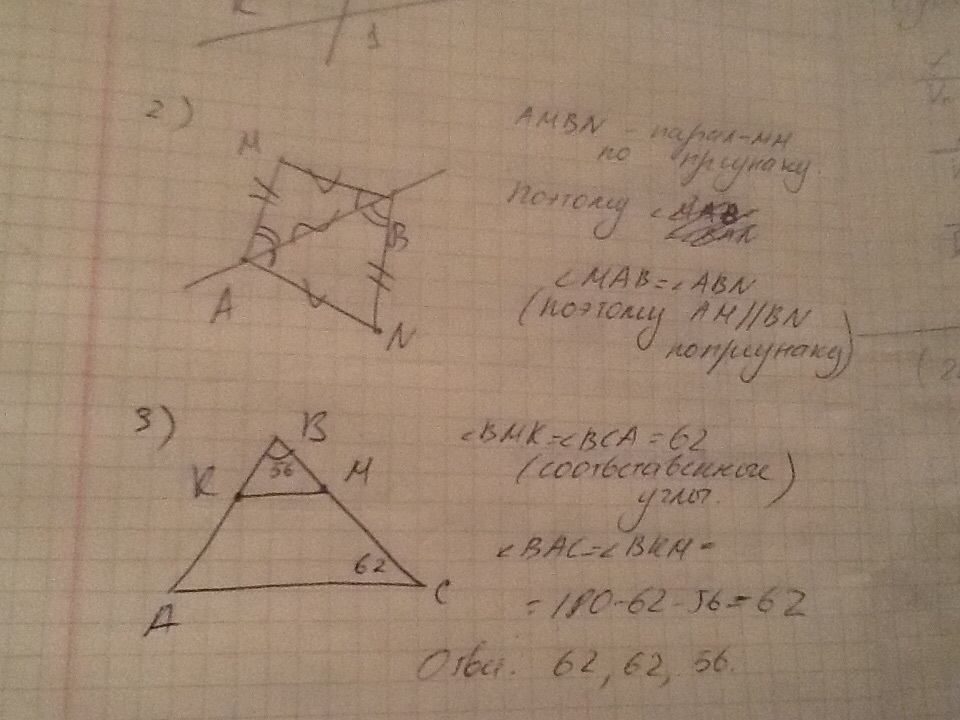 1
2)
M
B
A
N
AMBN - парал-мм
по признаку
Поэтому ∠
∠MAB=∠ABN
(поэтому AM//BN
по признаку)
3)
B
56
K
M
62
A
C
∠BMK=∠BCA=62
(соответственные
углы.)
∠BAC=∠BKM=
=180-62-56=62
Ответ: 62, 62, 56.